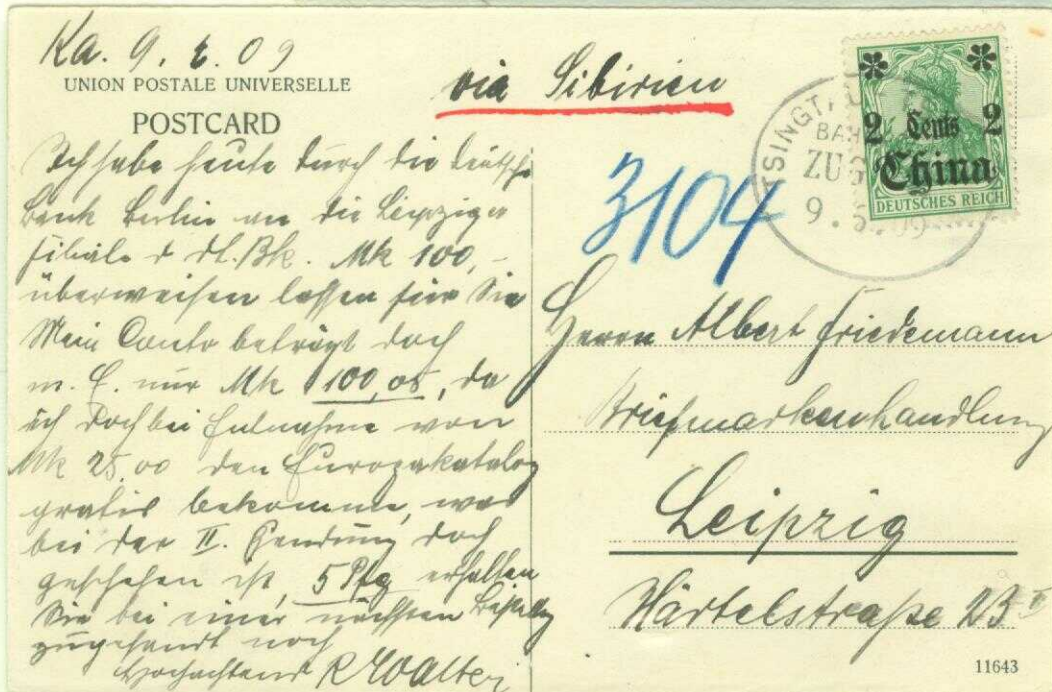 Ka. 9. 09
UNION POSTALE UNIVERSELLE
POSTCARD
via Sibirien
Ich habe heute durch die Deutsche
Bank Berlin an die Leipziger
Filiale d dt. Bk. Mk 100,-
überweisen lassen für Sie
Mein Conto beträgt doch
m. E. nur Mk 100,05, da
ich doch bei Entnahme von
Mk 25,00 den Europakatalog
gratis bekomme, was
bei der II. Sendung doch
geschehen ist, 5 Pfg erhalten
Sie bei einer nächsten
zugesandt noch
Hochachtend R Walter
3104
TSINGT
BAH
ZUG
9.
2 Cents 2
China
DEUTSCHES REICH
Herrn Albert Friedemann
Briefmarkenhandlung
Leipzig
Härtelstraße 23 II
11643